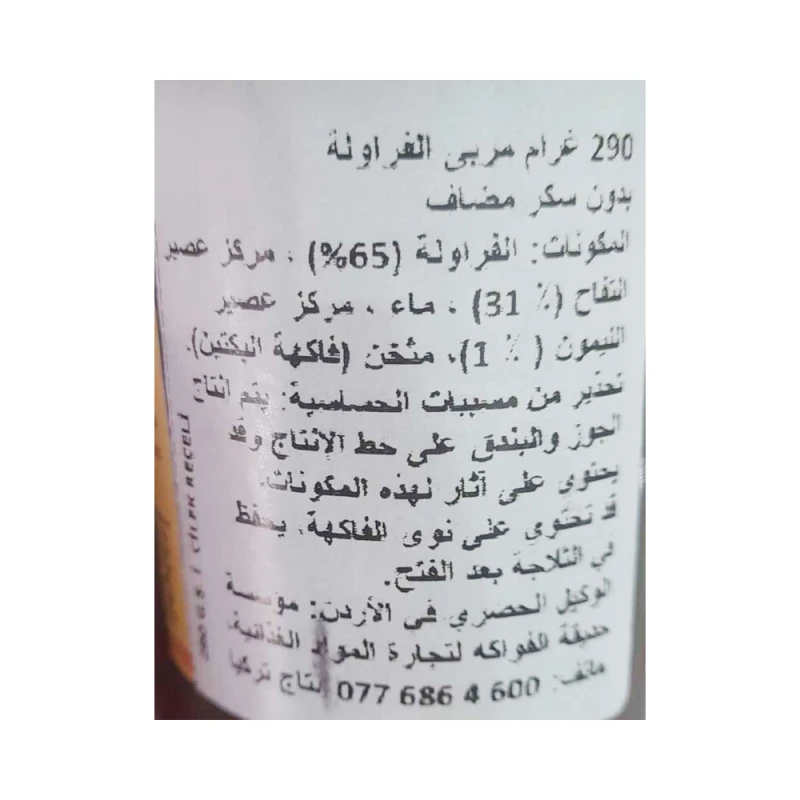 290 غرام مربى الفراولة
بدون سكر مضاف
المكونات: الفراولة (65%) ، مركز عصير
التفاح (31 ٪) ، ماء ، مركز عصير
الليمون (1 ٪)، مثخن (فاكهة البكتين).
تحذير من مسببات الحساسية: يتم انتاج
الجوز والبندق على خط الإنتاج وقد
يحتوي على آثار لهذه المكونات.
قد تحتوي على نوى الفاكهة. يحفظ
في الثلاجة بعد الفتح.
الوكيل الحصري في الأردن: مؤسسة
حديقة الفواكه لتجارة المواد الغذائية.
هاتف: 077 686 4 600 إنتاج تركيا
290 G S. | ÇİLEK REÇELİ